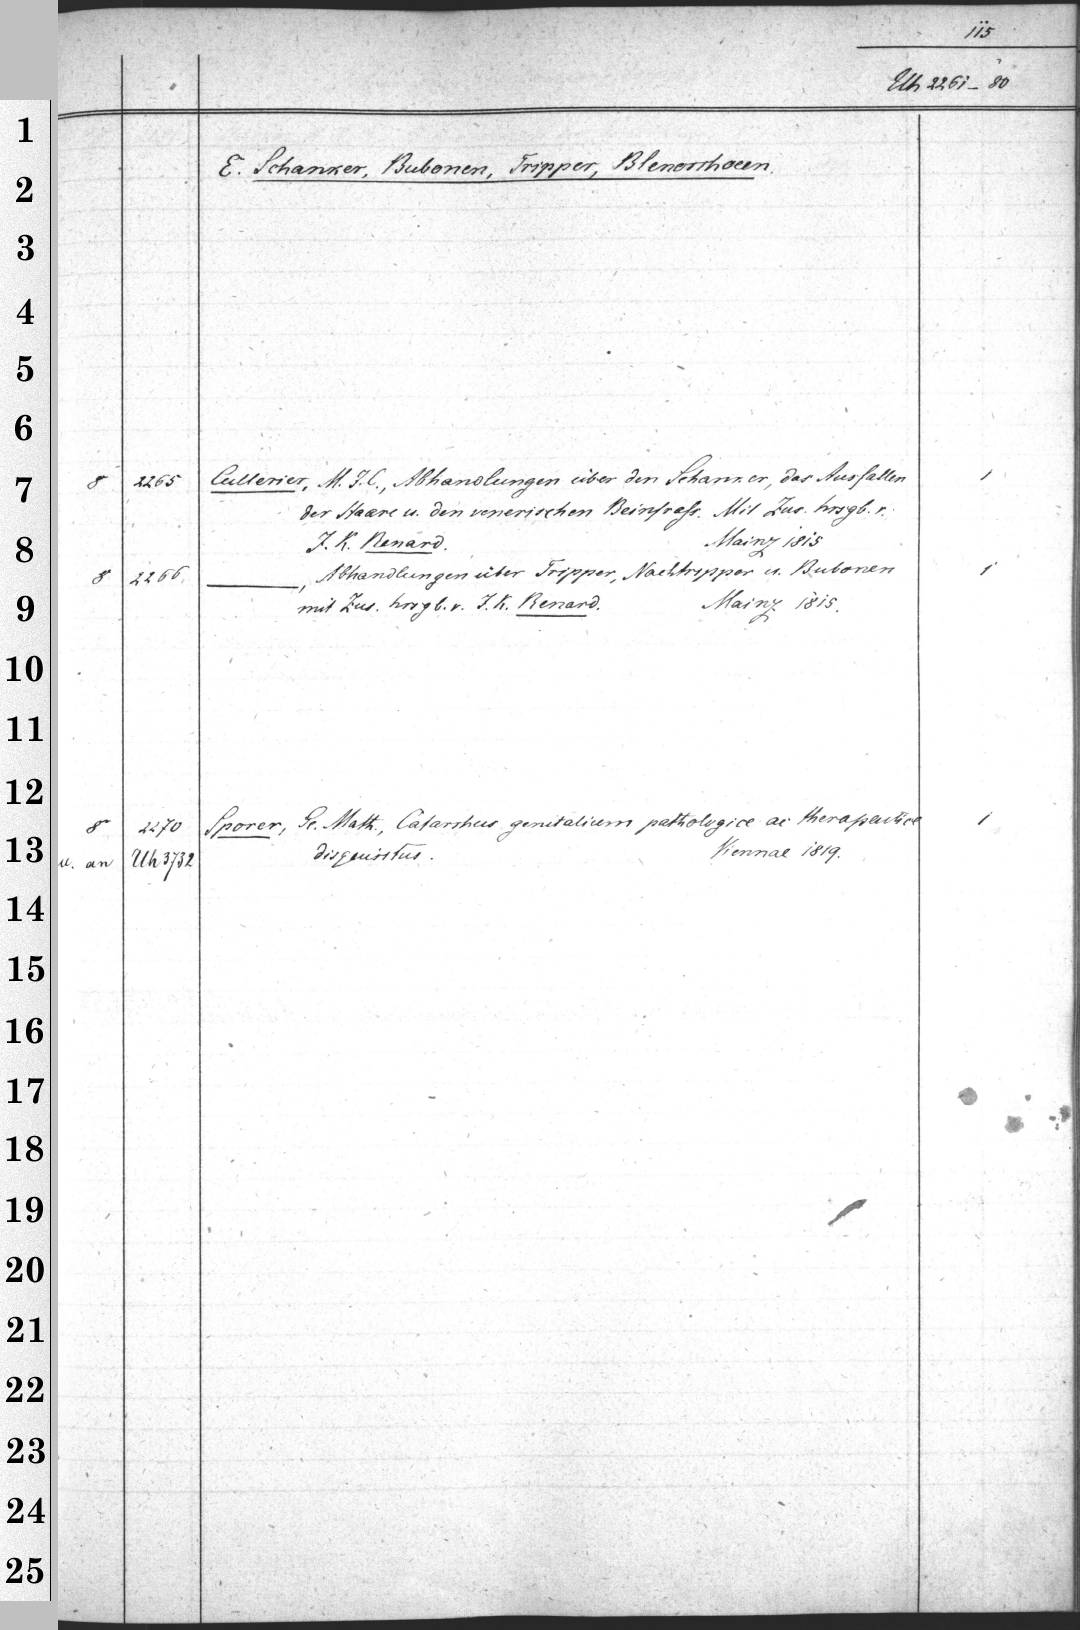 115
Uh 2261-80
1
E. Schanker, Bubonen, Tripper, Blenorrhoeen.
2
3
4
5
6
7
8 2265 Cullerier, M. J. C., Abhandlungen über den Schanker, das Ausfallen 1
der Haare u. den venerischen Beinfrass. Mit Zus. hrsgb. v.
8
J. K. Renard. Mainz 1815
8 2266. ———, Abhandlungen über Tripper, Nachtripper u. Bubonen 1
9
mit Zus. hrsgb. v. J. K. Renard. Mainz 1815.
10
11
12
8 2270 Sporer, Ge. Math., Catarrhus genitalium pathologice ac therapeutice 1
13
u. an Uh 3732 disquisitus. Viennae 1819.
14
15
16
17
18
19
20
21
22
23
24
25